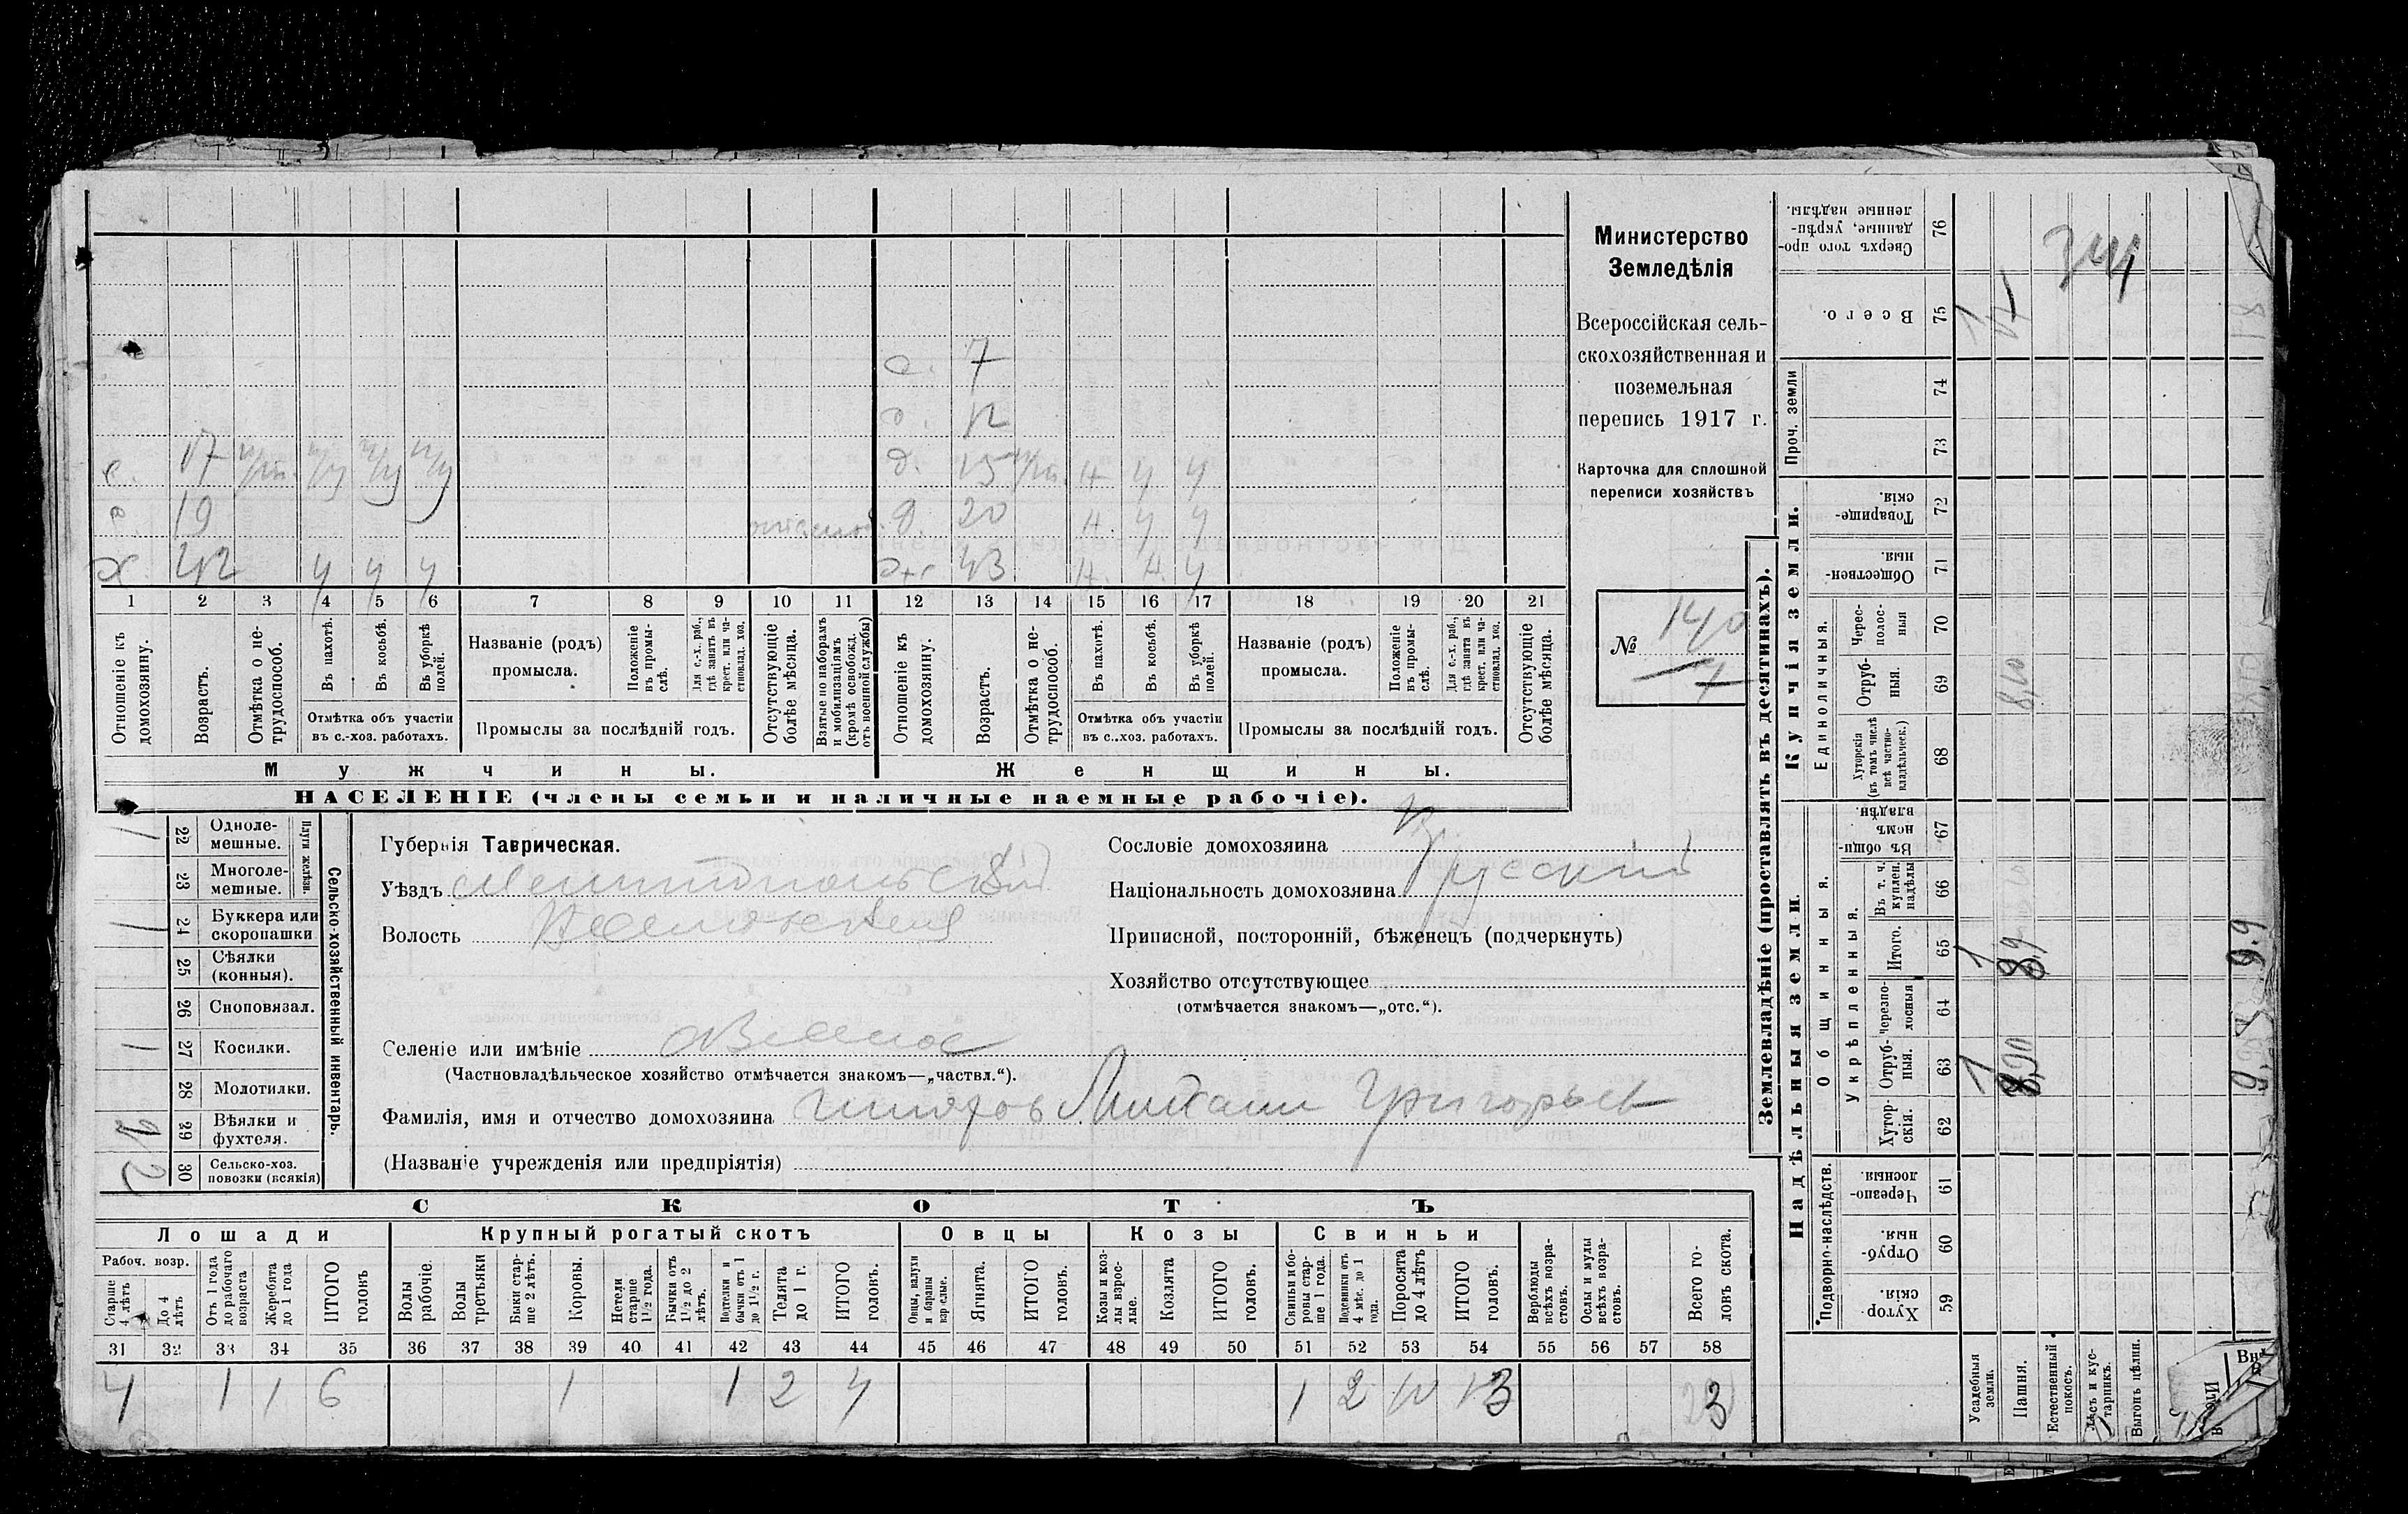 Министерство
Земледѣлія
Всероссійская сель-
скохозяйственная и
поземельная
перепись 1917 г.
Карточка для сплошной
переписи хозяйствъ
№ 140
7
с. 7
12
с. 17 д. 15 н у у
19 д. 20 н. у у
х 42 у у у 43 н. н. у
1 2 3 4 5 6 7 8 9 10 11 12 13 14 15 16 17 18 19 20 21
Отношеніе къ домохозяину.
Возрастъ.
Отмѣтка о не-трудоспособ.
Въ пахотѣ.
Въ косьбѣ.
Въ уборкѣ полей.
Отмѣтка объ участіи въ с.-хоз. работахъ.
Названіе (родъ) промысла.
Положеніе въ промы-слѣ.
Для с.-х. раб., гдѣ занятъ въ крест. или ча-стновлад. хоз.
Промыслы за послѣдній годъ.
Отсутствующіе болѣе мѣсяца.
Взятые по наборамъ и мобилизаціямъ (кромѣ освобожд. отъ военной службы)
Отношеніе къ домохозяину.
Возрастъ.
Отмѣтка о не-трудоспособ.
Въ пахотѣ.
Въ косьбѣ.
Въ уборкѣ полей.
Отмѣтка объ участіи въ с.-хоз. работахъ.
Названіе (родъ) промысла.
Положеніе въ промы-слѣ.
Для с.-х. раб., гдѣ занятъ въ крест. или ча-стновлад. хоз.
Промыслы за послѣдній годъ.
Отсутствующіе болѣе мѣсяца.
Мужчины. Женщины.
НАСЕЛЕНІЕ (члены семьи и наличные наемные рабочіе).
Сельско-хозяйственный инвентарь.
Плуги желѣзн.
1 22 Одноле-мешные.
23 Многоле-мешные.
1 24 Буккера или скоропашки
25 Сѣялки (конныя).
26 Сноповязал.
1 27 Косилки.
28 Молотилки.
29 Вѣялки и фухтеля.
2 30 Сельско-хоз. повозки (всякія)
Губернія Таврическая.
Уѣздъ Мелитопольскій
Волость Веселовская
Селеніе или имѣніе Веселое
(Частновладѣльческое хозяйство отмѣчается знакомъ—„частвл.“).
Фамилія, имя и отчество домохозяина Григорьев
(Названіе учрежденія или предпріятія)
Сословіе домохозяина кр.
Національность домохозяина русскій
Приписной, посторонній, бѣженецъ (подчеркнуть)
Хозяйство отсутствующее
(отмѣчается знакомъ—„отс.“).
СКОТЪ
Лошади Крупный рогатый скотъ Овцы Козы Свиньи
Рабоч. возр.
Старше 4 лѣтъ
До 4 лѣтъ
Отъ 1 года до рабочаго возраста
Жеребята до 1 года
ИТОГО головъ
Волы рабочіе.
Волы третьяки
Быки стар-ше 2 лѣтъ.
Коровы.
Нетели старше 1½ года.
Бычки отъ 1½ до 2 лѣтъ.
Подтелки и бычки отъ 1 до 1½ г.
Телята до 1 г.
ИТОГО головъ.
Овцы, валухи и бараны взрослые.
Ягнята.
ИТОГО головъ.
Козы и коз-лы взрос-лые.
Козлята
ИТОГО головъ.
Свиньи и бо-ровы стар-ше 1 года.
Подсвинки отъ 4 мѣс. до 1 года.
Поросята до 4 лѣтъ
ИТОГО головъ.
Верблюды всѣхъ возра-стовъ.
Ослы и мулы всѣхъ возра-стовъ.
Всего го-ловъ скота.
31 32 33 34 35 36 37 38 39 40 41 42 43 44 45 46 47 48 49 50 51 52 53 54 55 56 57 58
4 1 1 6 1 1 2 4 1 2 10 13 23
Землевладѣніе (проставлять въ десятинахъ).
Купчія земли.
Надѣльныя земли.
Сверхъ того про-данные, укрѣп-ленные надѣлы. 76
Всего. 75
Проч. земли
74
73
Товарище-скія. 72
Обществен-ныя. 71
Единоличныя.
Черес-полос-ныя 70
Отруб-ныя. 69 8,10
Хуторскія (въ томъ числѣ всѣ частно-владѣльческ.) 68
Общинныя.
Въ общи-номъ владѣн. 67
Укрѣпленныя.
Въ т. ч. куплен. надѣлы 66
Итого. 65 1
Черезпо-лосныя 64
Отруб-ныя. 63 1
Хутор-скія. 62
Подворно-наслѣдств.
Черезпо-лосныя 61
Отруб-ныя. 60
Хутор-скія. 59
Усадебныя земли.
Пашня.
Естественный покосъ.
Лѣсъ и кус-тарникъ.
Выгонъ цѣлин.
9.9